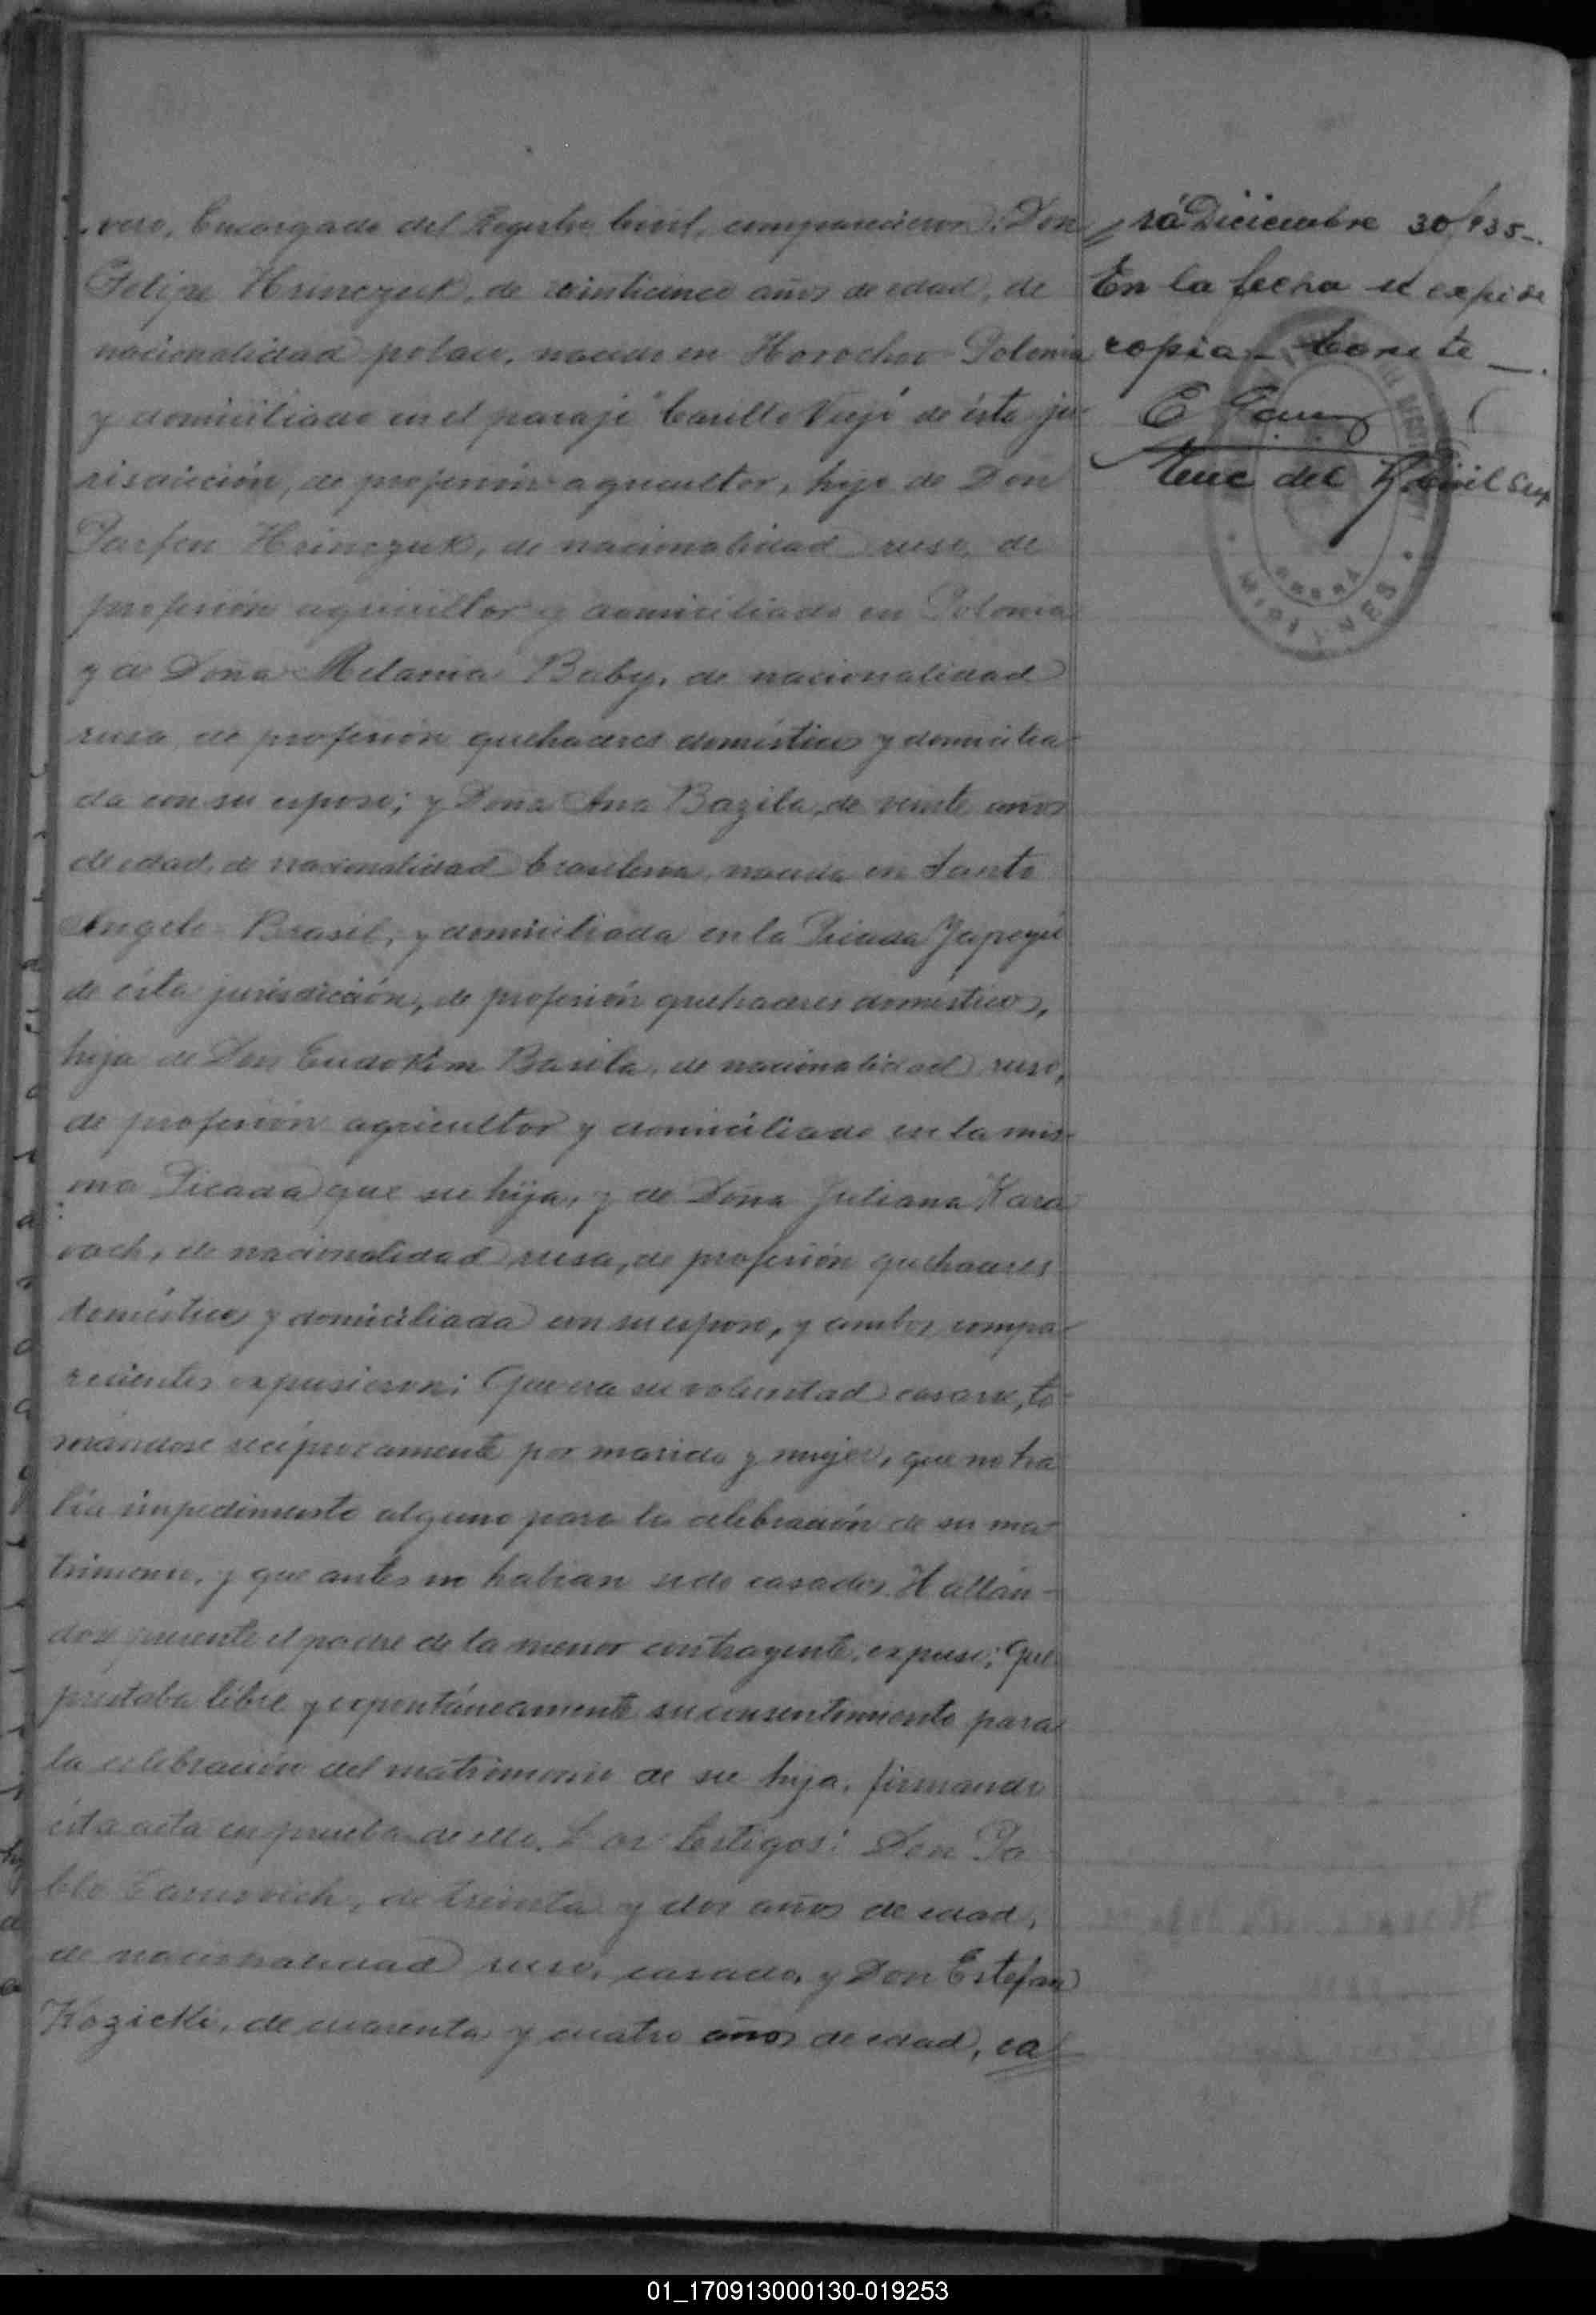 vero, Encargado del Registro Civil, comparecieron: Don
Felipe Hrinczuk, de veinticinco años de edad, de
nacionalidad polaco, nacido en Horochov-Polonia
y domiciliado en el paraje "Carillo Viejo" de ésta ju-
risdicción, de profesión agricultor, hijo de Don
Parfen Hrinczuk, de nacionalidad ruso, de
profesión agricultor y domiciliado en Polonia
y de Doña Melania Baby, de nacionalidad
rusa, de profesión quehaceres domésticos y domicilia-
da con su esposo; y Doña Ana Bazila, de veinte años
de edad, de nacionalidad brasilera, nacida en Santo
Angelo-Brasil, y domiciliada en la Picada Yapeyú
de ésta jurisdicción, de profesión quehaceres domésticos,
hija de Don Eudokim Basila, de nacionalidad ruso,
de profesión agricultor y domiciliado en la mis-
ma Picada que su hija, y de Doña Juliana Kara
vach, de nacionalidad rusa, de profesión quehaceres
domésticos y domiciliada con su esposo, y ambos compa-
recientes expusieron: Que era su voluntad casarse, to-
mándose recíprocamente por marido y mujer, que no ha
bía impedimento alguno para la celebración de su ma-
trimonio, y que antes no habian sido casados. Hallán-
dose presente el padre de la menor contrayente, expuso: Que
prestaba libre y expontáneamente su consentimiento para
la celebración del matrimonio de su hija, firmando
ésta acta en prueba de ello. Los testigos: Don Pa
blo de treinta y dos años de edad,
de nacionalidad ruso, casado, y Don Estefan
Kozicki, de cuarenta y cuatro años de edad, ca
rá Diciembre 30/935-.
En la fecha se expide
copia - Conste
Enc del R. Civil Sup
MISIONES
01_170913000130-019253